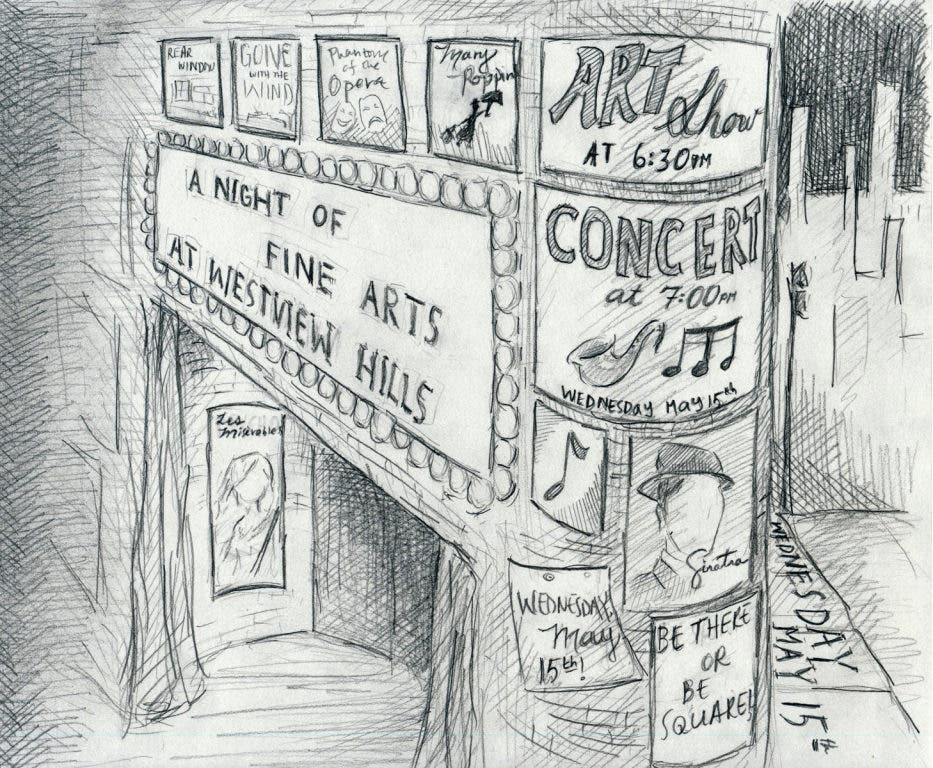 REAR
WINDOW
GONE
WITH THE
WIND
Phantom
of the
Opera
Mary
Poppins
ART
Show
AT 6:30PM
A NIGHT OF
FINE ARTS
AT WESTVIEW HILLS
CONCERT
at 7:00PM
WEDNESDAY MAY 15th
Les
Misérables
Sinatra
WEDNESDAY,
May
15th!
BE THERE
OR
BE
SQUARE!
WEDNESDAY
MAY 15th